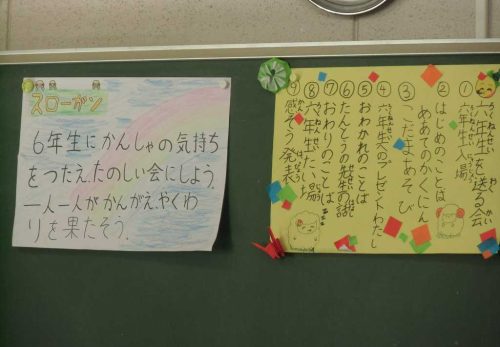 スローガン
6年生にかんしゃの気持ち
をつたえ、たのしい会にしよう。
一人一人がかんがえ、やくわ
りを果たそう。
六年生を送る会
① 六年生入場
② はじめのことば
めあてのかくにん
③ こだまあそび
④ 六年生へのプレゼントわたし
⑤ おわかれのことば
⑥ たんとうの先生の話
⑦ おわりのことば
⑧ 六年生たい場
⑨ 感そう発表